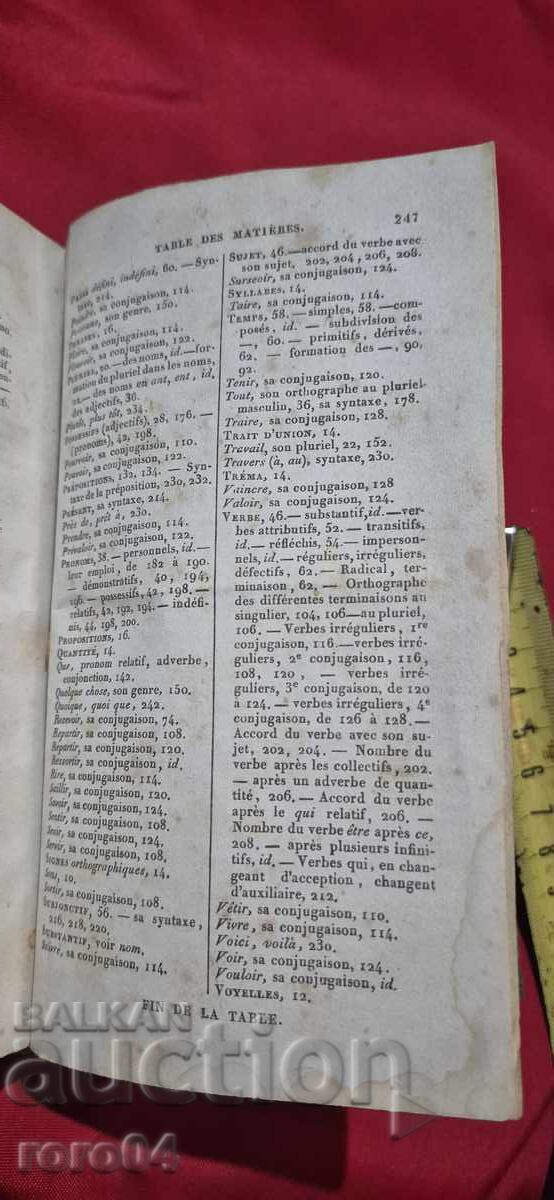 TABLE DES MATIÈRES. 247
Passé défini, indéfini, 60. — Syn-
taxe, 214.
Peindre, sa conjugaison, 114.
Personne, son genre, 150.
PHRASES, 16.
Plaire, sa conjugaison, 114.
Pleuvoir, sa conjugaison, 122.
PLURIEL, 20. — des noms, id. — for-
mation du pluriel dans les noms,
22. — des noms en ant, ent, id.
des adjectifs, 36.
Plutôt, plus tôt, 234.
POSSESSIFS (adjectifs), 28, 176. —
(pronoms), 42, 198.
Pourvoir, sa conjugaison, 110.
Pouvoir, sa conjugaison, 122.
PRÉPOSITIONS, 132, 134. — Syn-
taxe de la préposition, 230, 232.
PRÉSENT, sa syntaxe, 214.
Près de, prêt à, 230.
Prendre, sa conjugaison, 114.
Prévaloir, sa conjugaison, 122.
PRONOMS, 38. — personnels, id. —
leur emploi, de 182 à 190.
— démonstratifs, 40, 194,
196. — possessifs, 42, 198. —
relatifs, 42, 192, 194. — indéfi-
nis, 44, 198, 200.
PROPOSITIONS, 16.
QUANTITÉ, 14.
Que, pronom relatif, adverbe,
conjonction, 142.
Quelque chose, son genre, 150.
Quoique, quoi que, 242.
Recevoir, sa conjugaison, 74.
Repartir, sa conjugaison, 108.
Répartir, sa conjugaison, 120.
Ressortir, sa conjugaison, id.
Rire, sa conjugaison, 114.
Saillir, sa conjugaison, 120.
Savoir, sa conjugaison, 124.
Sentir, sa conjugaison, 108.
Seoir, sa conjugaison, 124.
Servir, sa conjugaison, 108.
SIGNES orthographiques, 14.
Sons, 10.
Sortir, sa conjugaison, 108.
SUBJONCTIF, 56. — sa syntaxe,
216, 218, 220.
SUBSTANTIF, voir nom.
Suivre, sa conjugaison, 114.
SUJET, 46. — accord du verbe avec
son sujet, 202, 204, 206, 208.
Surseoir, sa conjugaison, 124.
SYLLABES, 14.
Taire, sa conjugaison, 114.
TEMPS, 58. — simples, 58. — com-
posés, id. — subdivision des
—, 60. — primitifs, dérivés,
62. — formation des —, 90,
92.
Tenir, sa conjugaison, 120.
Tout, son orthographe au pluriel
masculin, 36, sa syntaxe, 178.
Traire, sa conjugaison, 128.
TRAIT D'UNION, 14.
Travail, son pluriel, 22, 152.
Travers (à, au), syntaxe, 230.
TRÉMA, 14.
Vaincre, sa conjugaison, 128
Valoir, sa conjugaison, 124.
VERBE, 46. — substantif, id. — ver-
bes attributifs, 52. — transitifs,
id. — réfléchis, 54. — imperson-
nels, id. — réguliers, irréguliers,
défectifs, 62. — Radical, ter-
minaison, 62, — Orthographe
des différentes terminaisons au
singulier, 104, 106. — au pluriel,
106. — Verbes irréguliers, 1re
conjugaison, 116. — verbes irré-
guliers, 2e conjugaison, 116,
108, 120, — verbes irré-
guliers, 3e conjugaison, de 120
à 124. — verbes irréguliers, 4e
conjugaison, de 126 à 128. —
Accord du verbe avec son su-
jet, 202, 204. — Nombre du
verbe après les collectifs, 202.
— après un adverbe de quan-
tité, 206. — Accord du verbe
après le qui relatif, 206. —
Nombre du verbe être après ce,
208. — après plusieurs infini-
tifs, id. — Verbes qui, en chan-
geant d'acception, changent
d'auxiliaire, 212.
Vêtir, sa conjugaison, 110.
Vivre, sa conjugaison, 114.
Voici, voilà, 230.
Voir, sa conjugaison, 124.
Vouloir, sa conjugaison, id.
VOYELLES, 12.
FIN DE LA TABLE.
BALKAN
auction
roro04
4
5
6
7
8